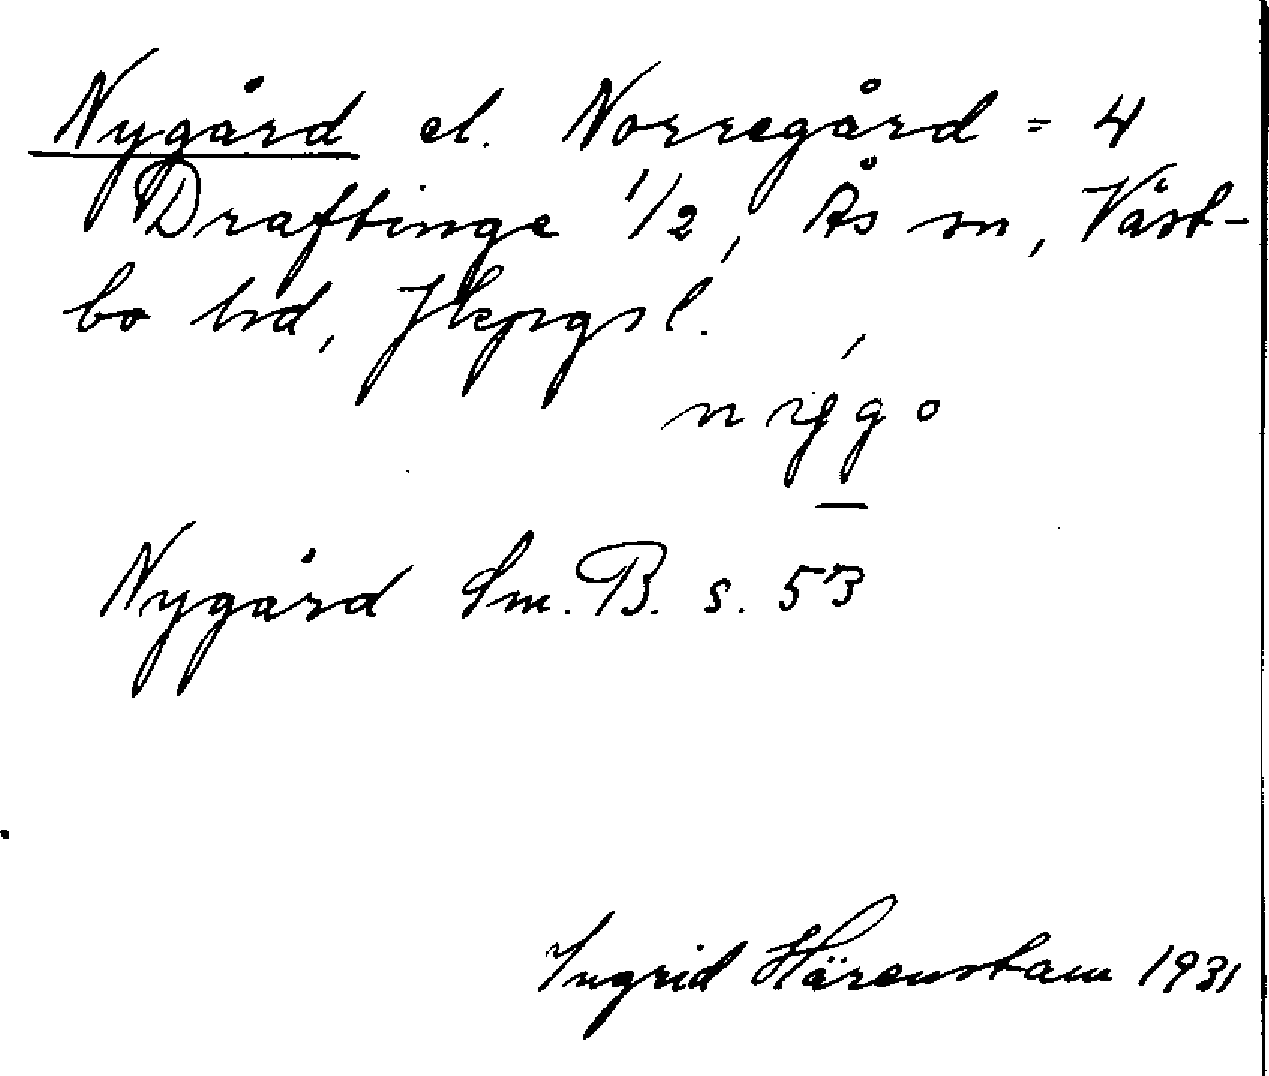 Nygård el. Norregård = 4
Draftinge 1/2, Ås sn, Väst-
bo hd, Jkpgsl.
Nygård Sm. B. s. 53
Ingrid Härenstam 1931